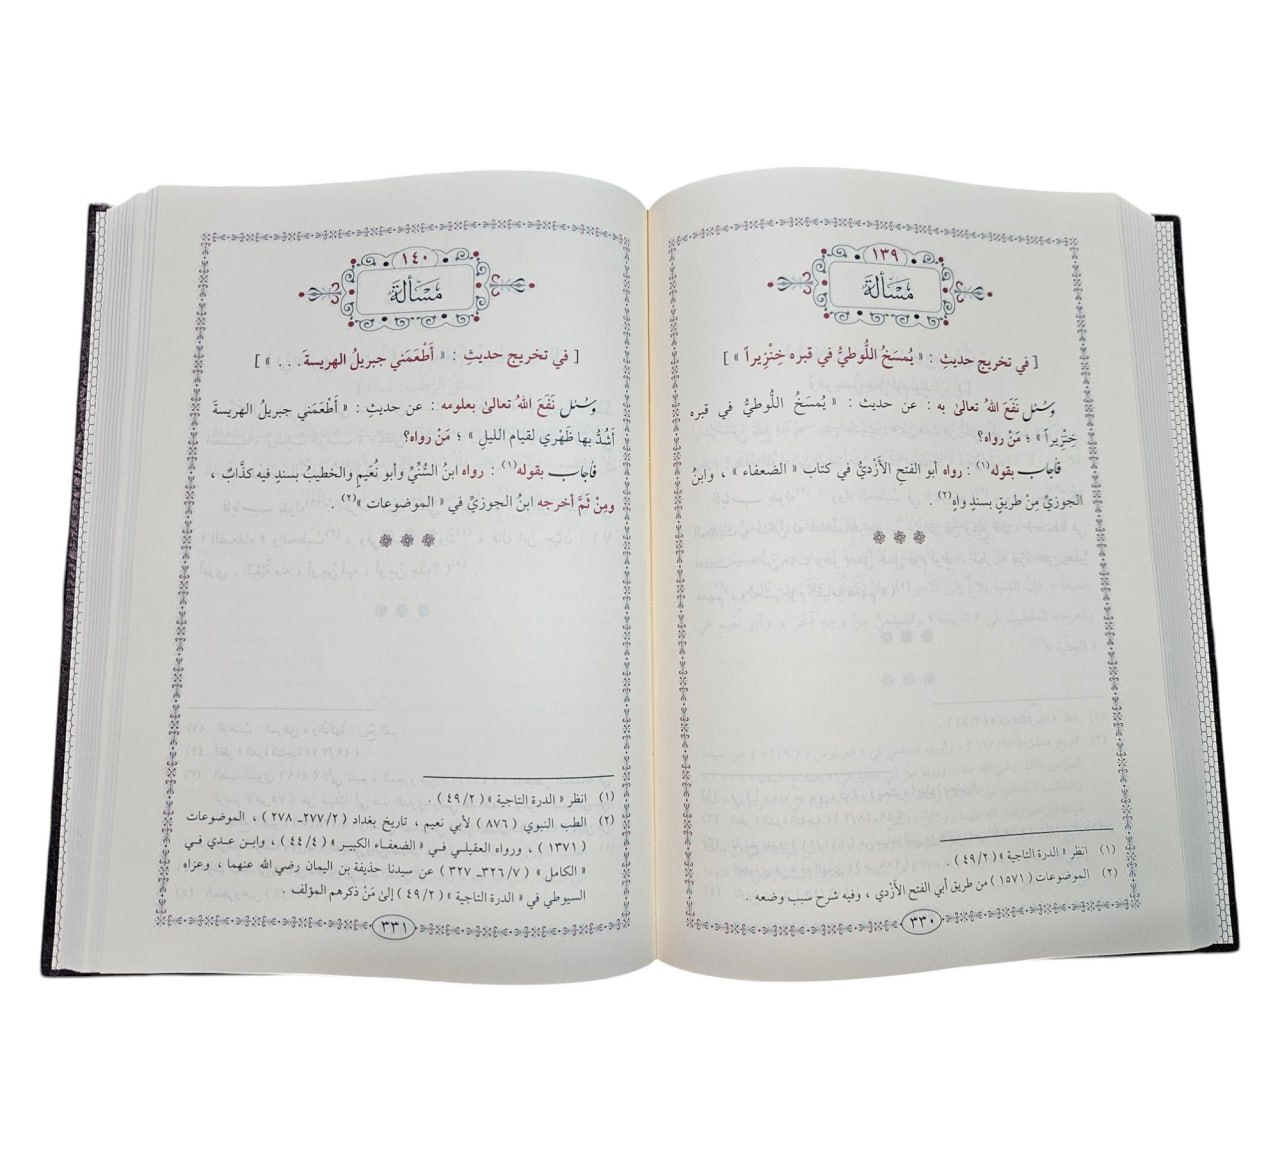 ١٣٩
مَسْأَلَة
[ في تخريج حديثِ : « يُمسَخُ اللُّوطيُّ في قبره خِنْزِيراً » ]
وسُئل نَفَعَ اللهُ تعالىٰ به : عن حديث : « يُمسَخُ اللُّوطيُّ في قبره
خِنْزِيراً » ؛ مَنْ رواه؟
فأجاب بقوله(١) : رواه أبو الفتح الأَزْديُّ في كتاب « الضعفاء » ، وابنُ
الجوزيِّ مِنْ طريقٍ بسندٍ واهٍ(٢) .
(١) انظر « الدرة التاجية » ( ٤٩/٢ ) .
(٢) الموضوعات ( ١٥٧١ ) من طريق أبي الفتح الأَزْدي ، وفيه شرح سبب وضعه .
٣٣٠
١٤٠
مَسْأَلَة
[ في تخريج حديثِ : « أَطْعَمَني جبريلُ الهريسةَ . . . » ]
وسُئل نَفَعَ اللهُ تعالىٰ بعلومه : عن حديثِ : « أَطْعَمَني جبريلُ الهريسةَ
أَشُدُّ بها ظَهْري لقيام الليلِ » ؛ مَنْ رواه؟
فأجاب بقوله(١) : رواه ابنُ السُّنِّيِّ وأبو نُعَيمٍ والخطيبُ بسندٍ فيه كذَّابٌ ،
ومِنْ ثَمَّ أخرجه ابنُ الجوزيِّ في « الموضوعات »(٢) .
(١) انظر « الدرة التاجية » ( ٤٩/٢ ) .
(٢) الطب النبوي ( ٨٧٦ ) لأبي نعيم ، تاريخ بغداد ( ٢٧٧/٢ـ٢٧٨ ) ، الموضوعات
( ١٣٧١ ) ، ورواه العقيلي في « الضعفاء الكبير » ( ٤٤/٤ ) ، وابن عدي في
« الكامل » ( ٣٢٦/٧ـ٣٢٧ ) عن سيدنا حذيفة بن اليمان رضي الله عنهما ، وعزاه
السيوطي في « الدرة التاجية » ( ٤٩/٢ ) إلىٰ مَنْ ذكرهم المؤلف .
٣٣١